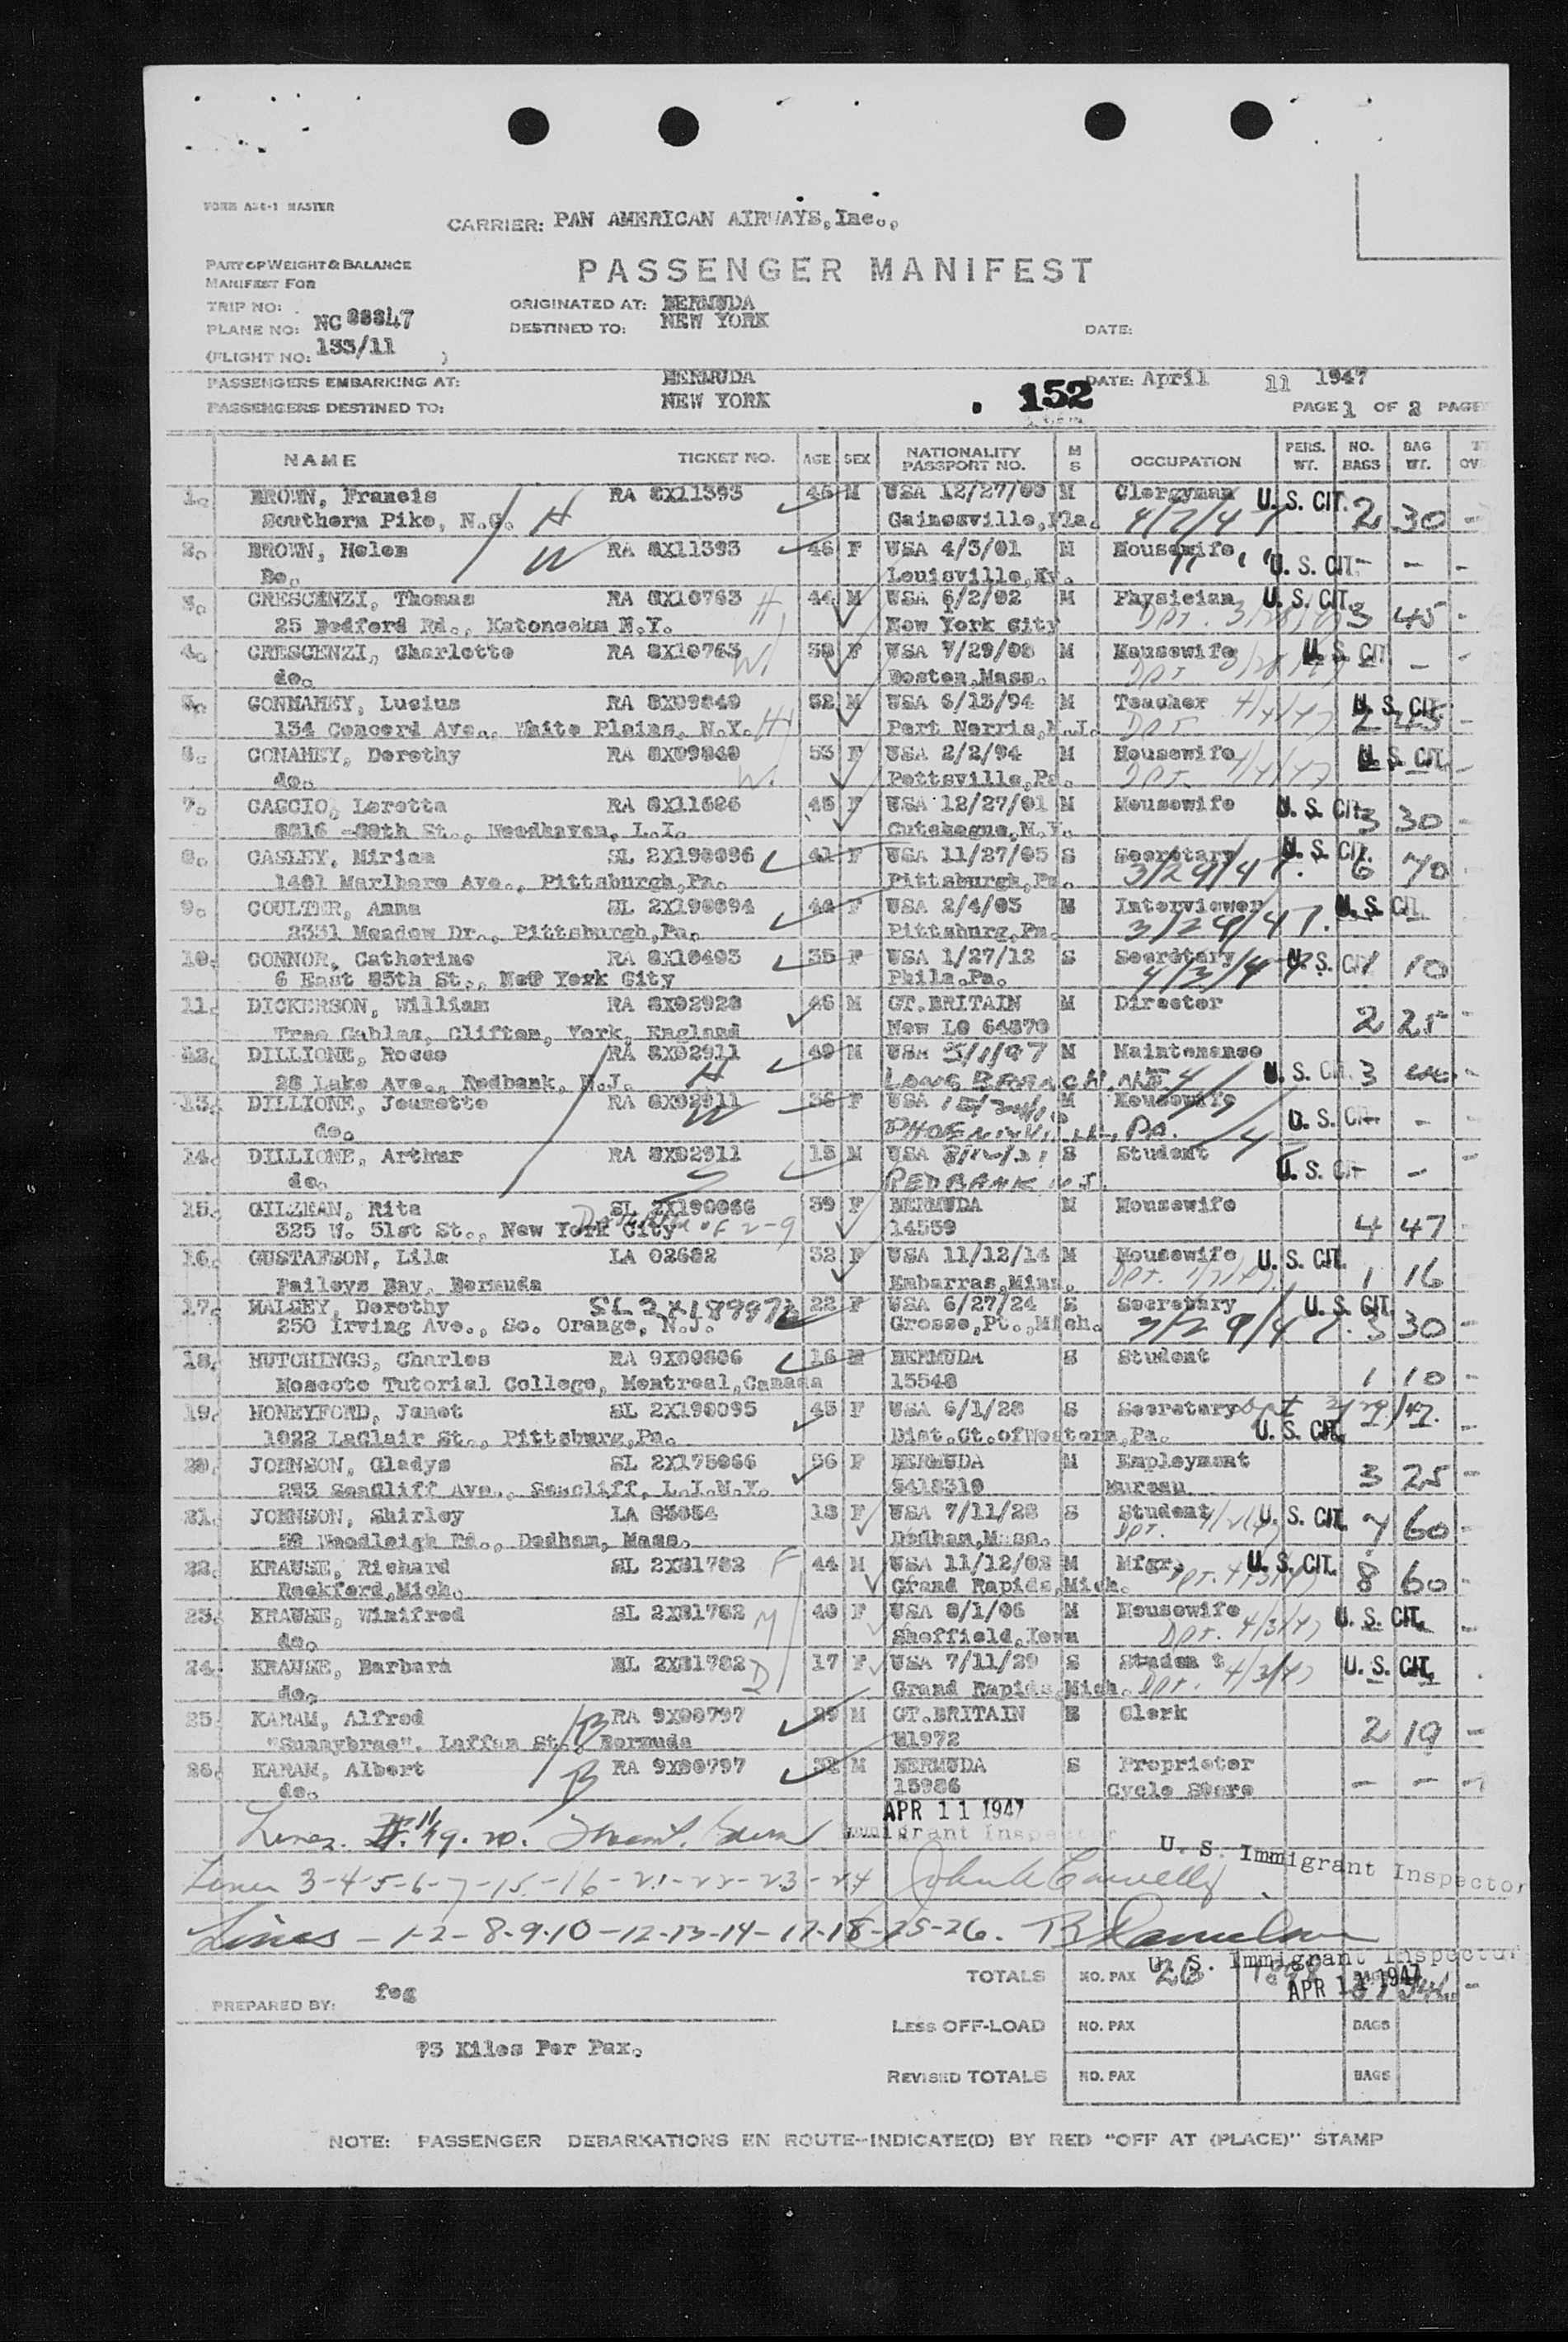 FORM A34-1 MASTER
CARRIER: PAN AMERICAN AIRWAYS, Inc.,
PART OF WEIGHT & BALANCE
MANIFEST FOR
PASSENGER MANIFEST
TRIP NO:
ORIGINATED AT: BERMUDA
PLANE NO: NC 88847
DESTINED TO: NEW YORK
DATE:
(FLIGHT NO: 133/11 )
PASSENGERS EMBARKING AT: BERMUDA
DATE: April 11 1947
PASSENGERS DESTINED TO: NEW YORK
152
PAGE 1 OF 2 PAGE
NAME TICKET NO. AGE SEX NATIONALITY PASSPORT NO. M S OCCUPATION PERS. WT. NO. BAGS BAG WT.
1. BROWN, Francis RA 8X11393 M USA 12/27/00 M Clergyman U. S. CIT. 2 30 -
Southern Pike, N.C. H Gainesville, Fla. 4/7/47
2. BROWN, Helen W RA 8X11393 46 F USA 4/3/01 M Housewife U. S. CIT. - - -
Do. Louisville, Ky.
3. CRESCENZI, Thomas RA 8X10763 H 44 M USA 6/2/02 M Physician U. S. CIT. 3 45 -
25 Bedford Rd., Katonockm N.Y. New York City Dpt. 3/28/47
4. CRESCENZI, Charlotte RA 8X10763 W. 38 F USA 7/29/08 M Housewife U. S. CIT - -
do. Boston, Mass. Dpt 3/28/47
5. CONNAHEY, Lucius RA 8X09840 52 M USA 6/13/94 M Teacher 4/4/47 U. S. CIT. 2 45 -
134 Concord Ave., White Plains, N.Y. H Port Norris, N.J. Dpt
6. CONAHEY, Dorothy RA 8X09840 W. 53 F USA 2/2/94 M Housewife U. S. CIT. - -
do. Pottsville, Pa. Dpt. 4/4/47
7. CASCIO, Loretta RA 8X11686 45 F USA 12/27/01 M Housewife U. S. CIT. 3 30 -
St., Woodhaven, L.I. Cutchogue, N.Y.
8. CASLEY, Miriam SL 2X190096 41 F USA 11/27/05 S Secretary U. S. CIT. 6 70 -
1401 Marlboro Ave., Pittsburgh, Pa. Pittsburgh, Pa. 3/29/47.
9. COULTER, Anna SL 2X190094 44 F USA 2/4/03 M Interviewer U. S. CIT
2331 Meadow Dr., Pittsburgh, Pa. Pittsburg, Pa. 3/29/47.
10. CONNOR, Catherine RA 8X10403 35 F USA 1/27/12 S Secretary U. S. CIT 1 10 -
6 East 85th St., New York City Phila. Pa. 4/3/47
11. DICKERSON, William RA 8X02928 46 M GT. BRITAIN M Director
Tree Gables, Clifton, York, England New LO 64370 2 25 -
12. DILLIONE, Rocco RA 8X02911 49 M USA 5/1/97 M Maintenance
28 Lake Ave., Redbank, N.J. H LONG BRANCH. N.J. U. S. CIT. 3 -
13. DILLIONE, Jeanette RA 8X02911 W F USA M Housewife
do. PHOENIXVILLE, PA. U. S. CIT - -
14. DILLIONE, Arthur RA 8X02911 15 M USA S Student
do. S RED BANK N.J. U. S. CIT - -
15. GILZEAN, Rita SL 2X190066 39 F BERMUDA M Housewife
325 W. 51st St., New York City 14559 4 47 -
16. GUSTAFSON, Lila LA 02682 32 F USA 11/12/14 M Housewife U. S. CIT.
Baileys Bay, Bermuda Embarras, Minn. Dpt. 1/7/47. 1 16
17. HALSEY, Dorothy 22 F USA 6/27/24 S Secretary U. S. CIT
250 Irving Ave., So. Orange, N.J. Grosse, Pt., Mich. 3/29/47. 3 30 -
18. HUTCHINGS, Charles RA 9X00806 16 M BERMUDA S Student
Moscote Tutorial College, Montreal, Canada 15548 1 10 -
19. HONEYFORD, Janet SL 2X190095 45 F USA 6/1/28 S Secretary dpt 3/29/47.
1022 LaClair St., Pittsburg, Pa. Dist. Ct. of Western, Pa. U. S. CIT.
20. JOHNSON, Gladys SL 2X175066 56 F BERMUDA M Employment 3 25 -
293 Seacliff Ave., Seacliff, L.I.N.Y. 5418319 Bureau
21. JOHNSON, Shirley LA 03054 18 F USA 7/11/28 S Student U. S. CIT. 7 60 -
Woodleigh Rd., Dedham, Mass. Dedham, Mass. Dpt. 4/2/47
22. KRAUSE, Richard SL 2X31782 F 44 M USA 11/12/02 M Mfgr. U. S. CIT. 8 60 -
Rockford, Mich. Grand Rapids, Mich. Dpt. 4/3/47
23. KRAUSE, Winifred SL 2X31782 M 40 F USA 8/1/06 M Housewife U. S. CIT.
do. Sheffield, Iowa Dpt. 4/3/47
24. KRAUSE, Barbara SL 2X31782 D 17 F USA 7/11/29 S Student 4/3/47 U. S. CIT.
do. Grand Rapids, Mich. Dpt.
25. KARAM, Alfred B RA 9X00797 29 M GT. BRITAIN Clerk
"Sunnybrae", Laffan St. Bermuda 2 19 -
26. KARAM, Albert B RA 9X00797 32 M BERMUDA S Proprietor
do. 15986 Cycle Store - - -
APR 11 1947
Immigrant Inspector
U. S. Immigrant Inspector
Lines 3-4-5-6-7-15-16-21-22-23-24
Lines - 1-2-8-9-10-12-13-14-17-18-25-26.
U. S. Immigrant Inspector
APR 11 1947
TOTALS NO. PAX 26 BAGS
PREPARED BY: feg
LESS OFF-LOAD NO. PAX BAGS
Kilos Per Pax.
REVISED TOTALS NO. PAX BAGS
NOTE: PASSENGER DEBARKATIONS EN ROUTE--INDICATE(D) BY RED "OFF AT (PLACE)" STAMP